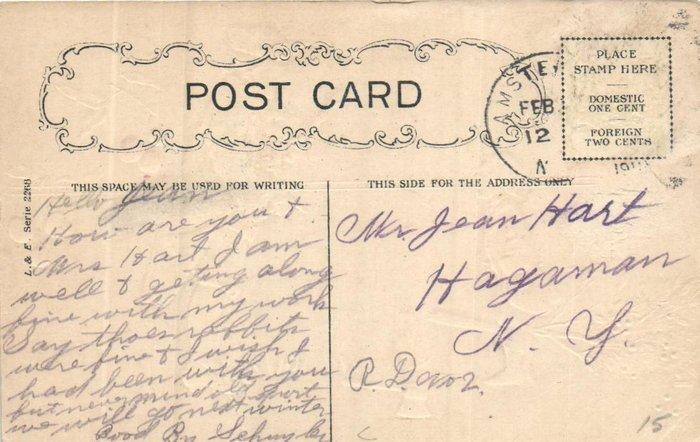 POST CARD
AMSTE
FEB
12
N
PLACE
STAMP HERE
DOMESTIC
ONE CENT
FOREIGN
TWO CENTS
L. & E. Serie 2268
THIS SPACE MAY BE USED FOR WRITING
THIS SIDE FOR THE ADDRESS ONLY
Hello Jean
How are you &
Mrs Hart I am
well & geting along
fine with my work
Say thoes rabbits
were fine & I wish I
had been with you
but never mind old sport
we will go next winter
Good By
Mr. Jean Hart
Hagaman
N. Y.
15